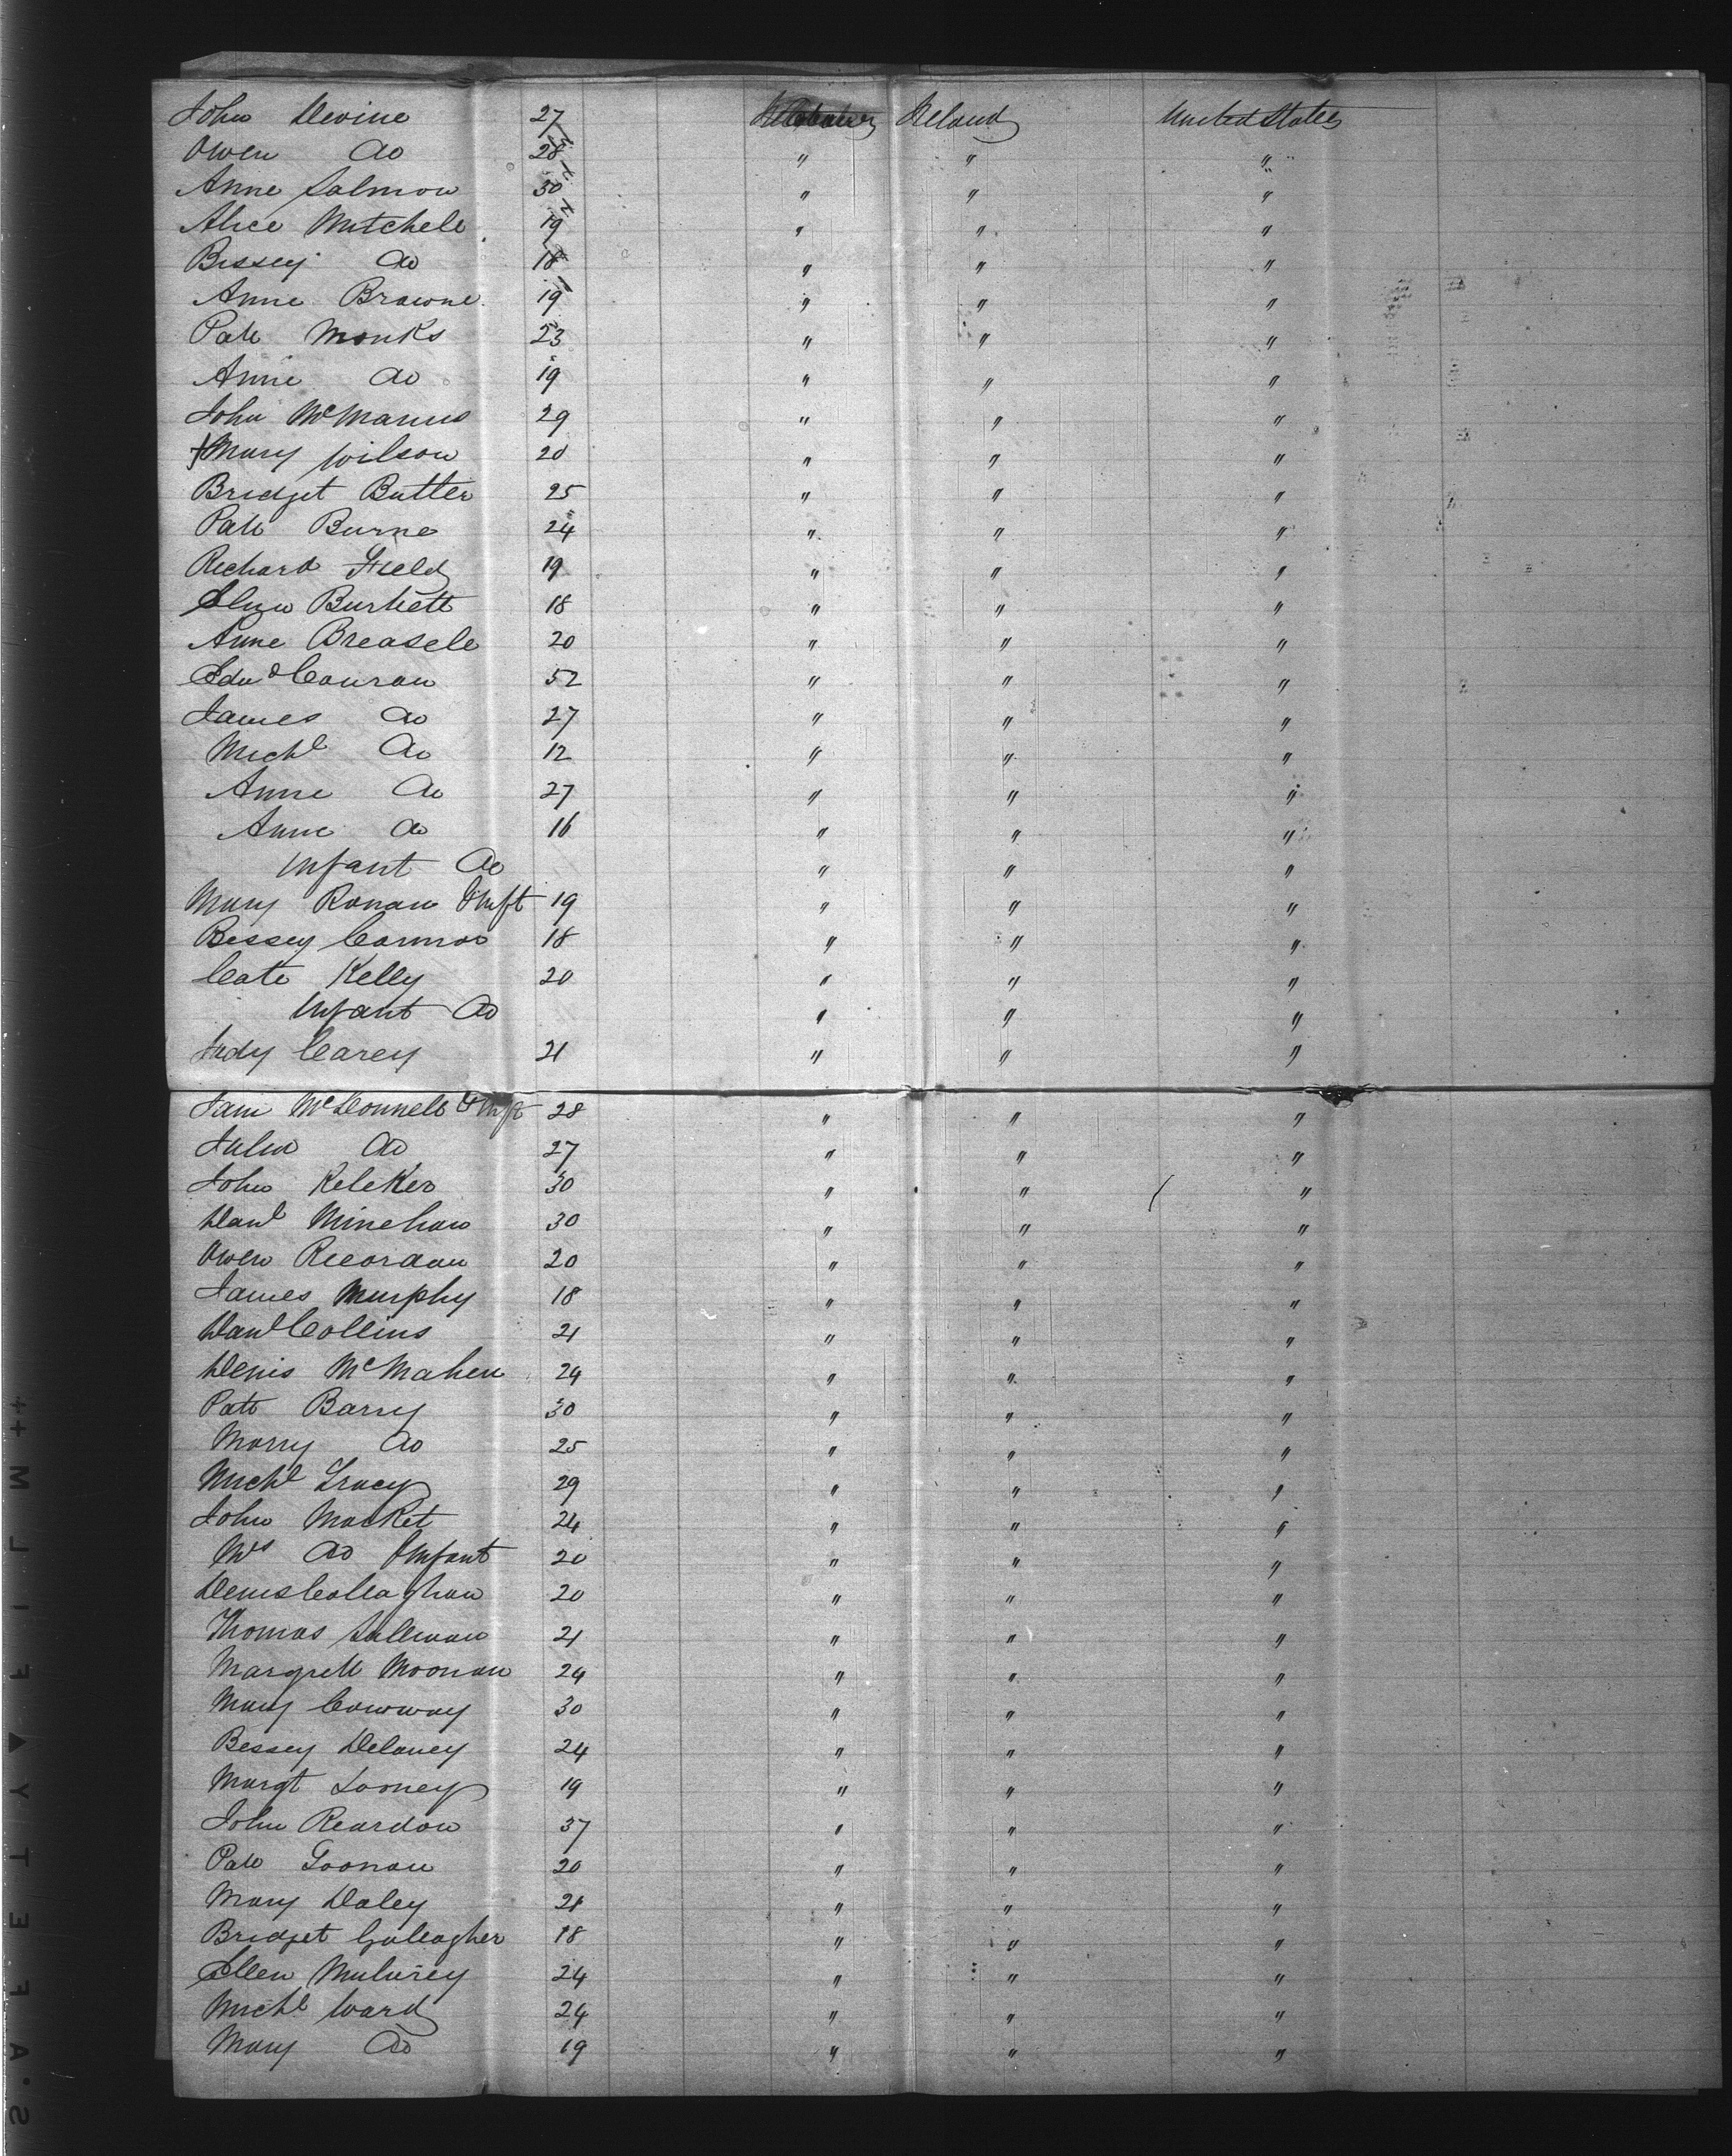 John Devine 27 Ireland United States
Owen do 28 " " "
Anne Salmon 30 " " "
Alice Mitchell 19 " " "
Bessey do 18 " " "
Anne Browne 19 " " "
Patk Monks 23 " " "
Anne do 19 " " "
John McManus 29 " " "
Mary Wilson 20 " " "
Bridget Butler 25 " " "
Patk Burne 24 " " "
Richard Field 19 " " "
Burkett 18 " " "
Anne 20 " " "
Edwd Conran 52 " " "
James do 27 " " "
Michl do 12 " " "
Anne do 27 " " "
Anne do 16 " " "
Infant do " " "
Mary Ronan & Inft 19 " " "
Bessey Connor 18 " " "
Cate Kelly 20 " " "
Infant do " " "
Judy Carey 21 " " "
McDonnell & Inft 28 " " "
Julia do 27 " " "
John 30 " " "
Danl Minehan 30 " " "
Owen Reeordan 20 " " "
James Murphy 18 " " "
Danl Collins 21 " " "
Denis McMahen 24 " " "
Patk Barry 30 " " "
do 25 " " "
Michl Tracy 29 " " "
John Macket 24 " " "
Mrs do & Infant 20 " " "
Denis Collaghan 20 " " "
Thomas Sullivan 21 " " "
Margrett Moonan 24 " " "
Mary Conway 30 " " "
Bessey Delaney 24 " " "
Margt Looney 19 " " "
John Reardon 37 " " "
Patk 20 " " "
Mary Daley 21 " " "
Bridget Gallagher 18 " " "
Ellen 24 " " "
Michl Ward 24 " " "
Mary do 19 " " "